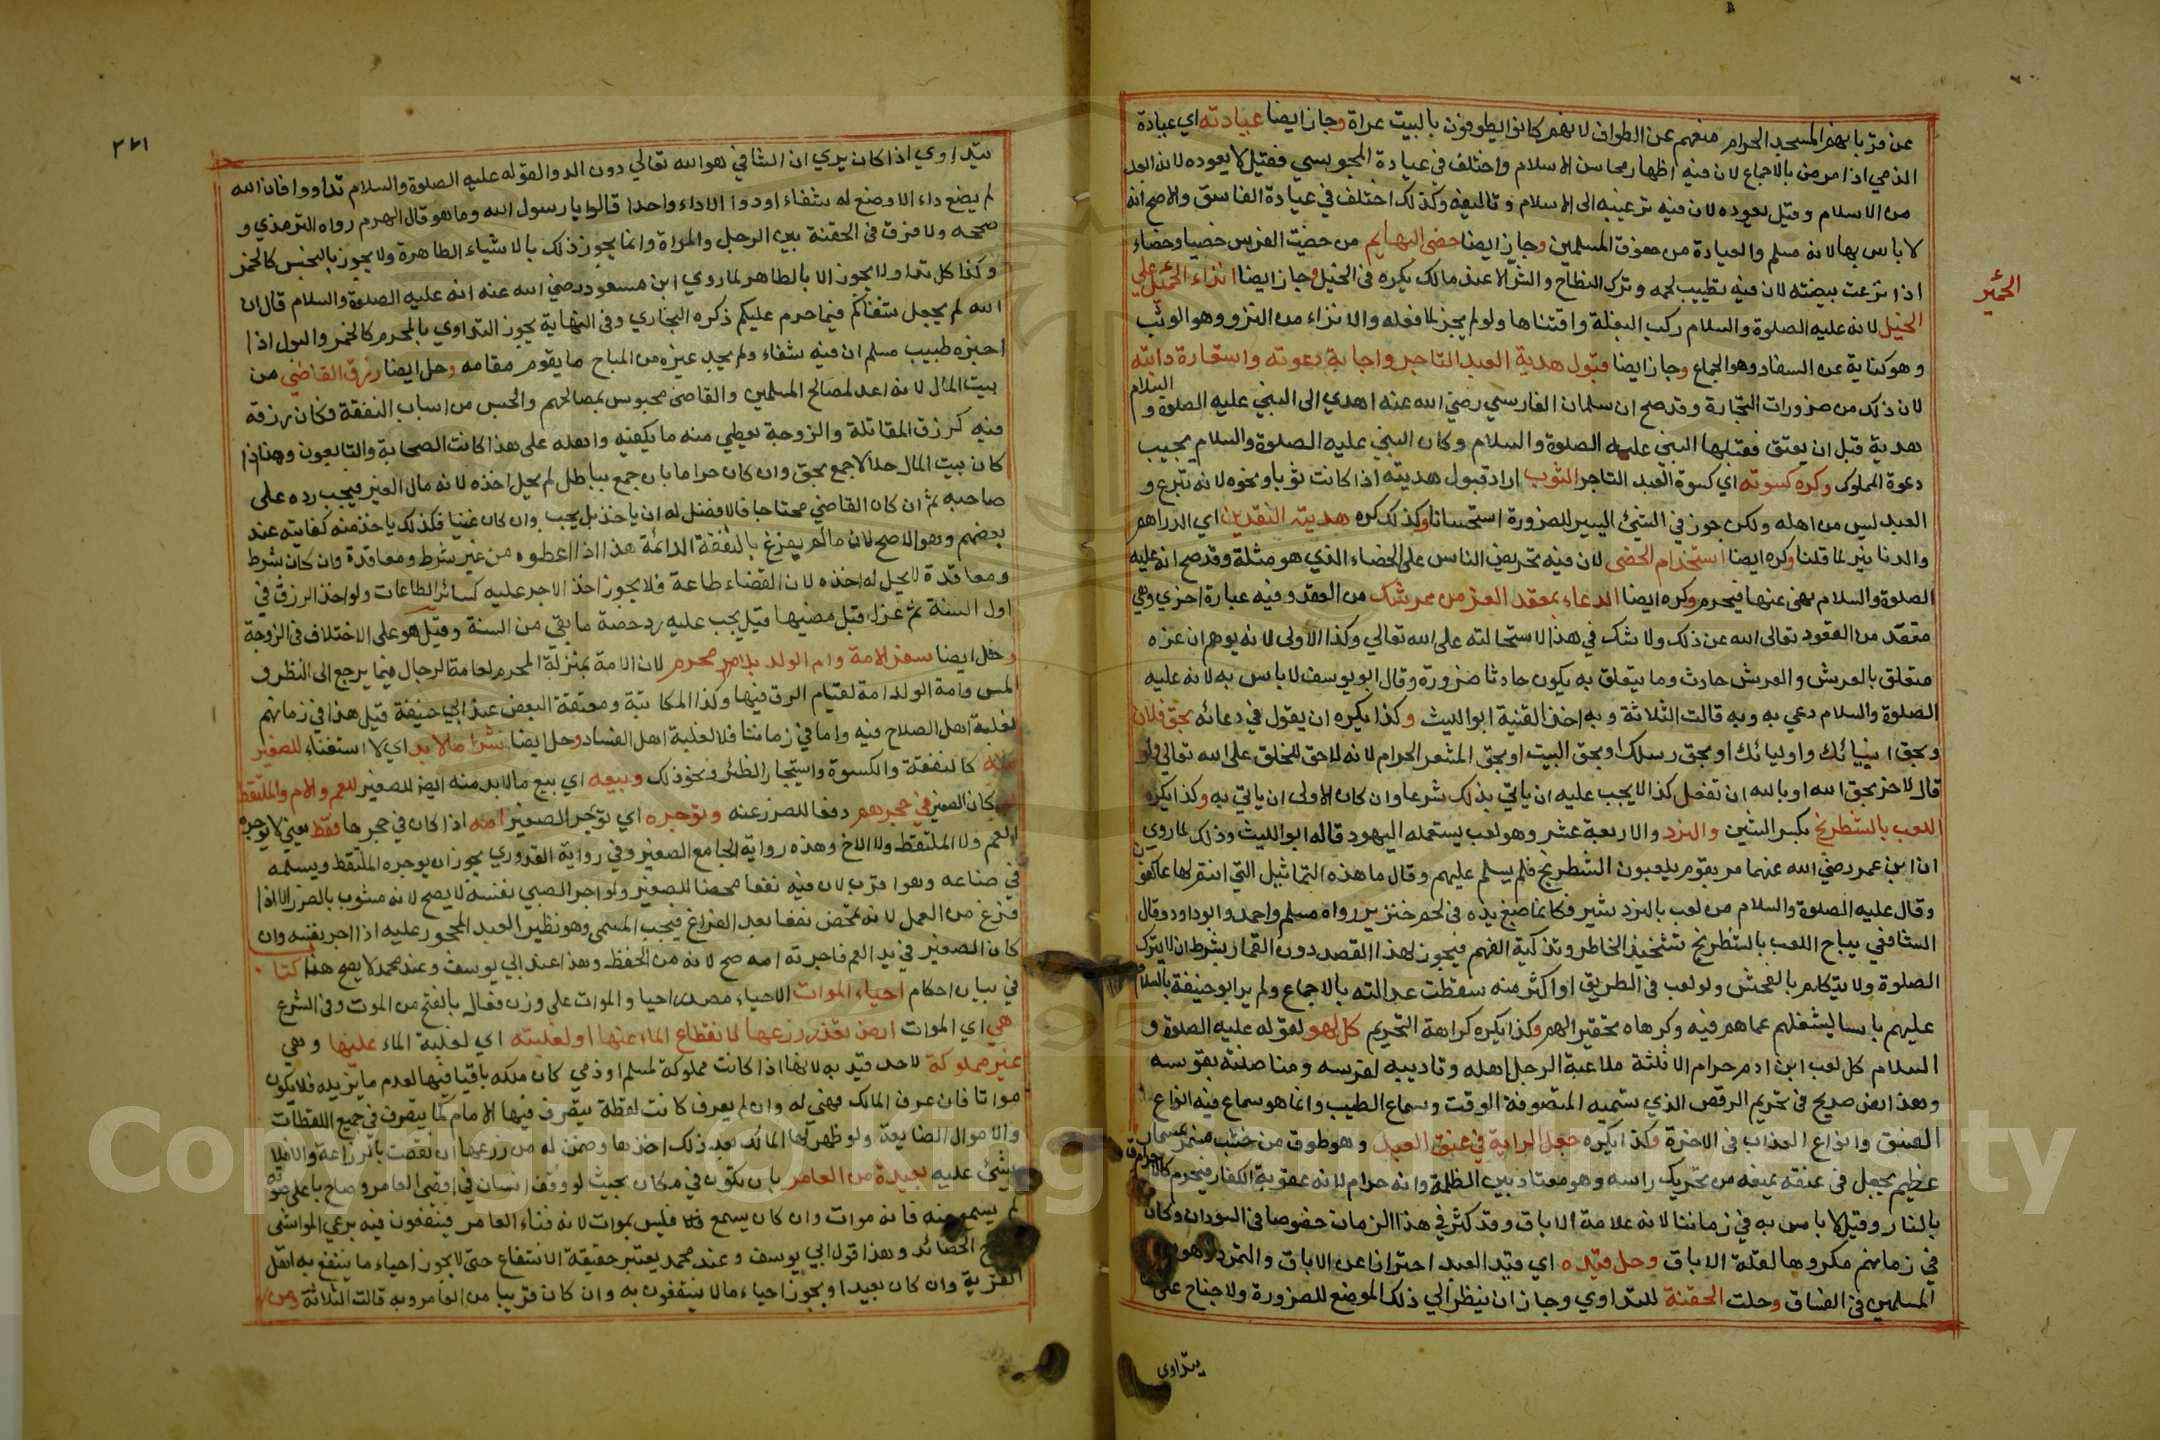 عن قربانهم المسجد الحرام منعهم عن الطواف لانهم كانوا يطوفون بالبيت عراة وجاز ايضا عيادته اي عيادة
الذمي اذا مرض بالاجماع لان فيه اظهار محاسن الاسلام واختلف في عيادة المجوسي فقيل لا يعوده لانه ابعد
من الاسلام وقيل يعوده لان فيه ترغيبه الى الاسلام وتاليفه وكذلك اختلف في عيادة الفاسق والاصح انه
لا باس بها لانه مسلم والعيادة من حقوق المسلمين وجاز ايضا خصى البهايم من خصيت الفرس خصيا وخصاء
اذا نزعت بيضته لان فيه تطييب لحمه وترك النطاح والشر الا عند مالك يكره في الخيل وجاز ايضا انزاء الحمير على
الحمير
الخيل لانه عليه الصلوة والسلام ركب البغلة واقتناها ولو لم يجز لما فعله والانزاء من النزو وهو الوثب
وهو كناية عن السفاد وهو الجماع وجاز ايضا قبول هدية العبد التاجر واجابة دعوته واستعارة دابته
لان ذلك من ضرورات التجارة وقد صح ان سلمان الفارسي رضي الله عنه اهدي الى النبي عليه الصلوة والسلام
هدية قبل ان يعتق فقبلها النبي عليه الصلوة والسلام وكان النبي عليه الصلوة والسلام يجيب
دعوة المملوك وكره كسوته اي كسوة العبد التاجر الثوب اراد قبول هديته اذا كانت ثوبا ونحوه لانه تبرع و
العبد ليس من اهله ولكن جوز في الشئ اليسير للضرورة استحسانا وكذلك كره هديته النقدين اي الدراهم
والدنانير لما قلنا وكره ايضا استخدام الخصى لان فيه تحريض الناس على الخصاء الذي هو مثلة وقد صح انه عليه
الصلوة والسلام نهى عنها فيحرم وكره ايضا الدعاء بمعقد العز من عرشك من العقد وفيه عبارة اخري وهي
مقعد من القعود تعالى الله عن ذلك ولا شك في هذا لاستحالته على الله تعالي وكذا الاولى لانه يوهم ان عزه
متعلق بالعرش والعرش حادث وما يتعلق به يكون حادثا ضرورة وقال ابو يوسف لا باس به لانه عليه
الصلوة والسلام دعي به وبه قالت الثلاثة وبه اخذ الفقيه ابو الليث وكذا يكره ان يقول في دعائه بحق فلان
وبحق انبيائك واوليائك او بحق رسلك او بحق البيت او بحق المشعر الحرام لانه لا حق للخلق على الله تعالى ولو
قال لاخر بحق الله او بالله ان تفعل كذا لا يجب عليه ان ياتي بذلك شرعا وان كان الاولى ان ياتي به وكذا يكره
اللعب بالشطرنج بكسر الشين والنرد والاربعة عشر وهو لعب يستعمله اليهود قاله ابو الليث وذلك لما روي
ان ابن عمر رضي الله عنهما مر بقوم يلعبون الشطرنج فلم يسلم عليهم وقال ما هذه التماثيل التي انتم لها عاكفون
وقال عليه الصلوة والسلام من لعب بالنرد شير فكانما صبغ يده في لحم خنزير رواه مسلم واحمد وابو داود وقال
الشافعي يباح اللعب بالشطرنج تشحيذ الخاطر وتذكية الفهم فيجوز لهذا القصد دون القمار بشرط ان لا يترك
الصلوة ولا يتكلم بالفحش ولو لعب في الطريق او اكثر منه سقطت عدالته بالاجماع ولم ير ابو حنيفة بالسلام
عليهم باسا ليشغلهم عما هم فيه وكرهاه تحقيرا لهم وكذا يكره كراهة التحريم كل لهو لقوله عليه الصلوة و
السلام كل لعب ابن ادم حرام الا ثلثة ملاعبة الرجل اهله وتاديبه لفرسه ومناضلته بقوسه
وهذا نص صريح في تحريم الرقص الذي تسميه المتصوفة الوقت وسماع الطيب وانما هو سماع فيه انواع
الفسق وانواع العذاب في الاخرة وكذا يكره جعل الراية في عنق العبد وهو طوق من خشب مسمر بمسمار
عظيم يجعل في عنقه يمنعه من تحريك راسه وهو معتاد بين الظلمة وانه حرام لانه عقوبة الكفار فيحرم كالاحراق
بالنار وقيل لا باس به في زماننا لانه علامة الاباق وقد كثر في هذا الزمان خصوصا في السودان وكان
في زمانهم مكروها لقلة الاباق وحل قيده اي قيد العبد احترازا عن الاباق والتمرد وهو
المسلمين في الفساق وحلت الحقنة للتداوي وجاز ان ينظر الي ذلك الموضع للضرورة ولا جناح على
يتداوي
٢٧١
يتداوي اذا كان يري ان الشافي هو الله تعالي دون الدوا لقوله عليه الصلوة والسلام تداووا فان الله
لم يضع داء الا وضع له شفاء او دواء الا داء واحدا قالوا يا رسول الله وما هو قال الهرم رواه الترمذي و
صححه ولا فرق في الحقنة بين الرجل والمراة وانما يجوز ذلك بالاشياء الطاهرة ولا يجوز بالنجس كالخمر
وكذا كل تداو لا يجوز الا بالطاهر لما روي ابن مسعود رضي الله عنه انه عليه الصلوة والسلام قال ان
الله لم يجعل شفائكم فيما حرم عليكم ذكره البخاري وفي النهاية يجوز التداوي بالمحرم كالخمر والبول اذا
اخبره طبيب مسلم ان فيه شفاء ولم يجد غيره من المباح ما يقوم مقامه وحل ايضا رزق القاضي من
بيت المال لانه اعد لمصالح المسلمين والقاضي محبوس بمصالحهم والحبس من اسباب النفقة فكان رزقه
فيه كرزق المقاتلة والزوجة يعطي منه ما يكفيه واهله على هذا كانت الصحابة والتابعون وهذا اذا
كان بيت المال حلالا جمع بحق وان كان حراما بان جمع بباطل لم يحل اخذه لانه مال الغير فيجب رده على
صاحبه ثم ان كان القاضي محتاجا فالافضل له ان ياخذ بل يجب وان كان غنيا فكذلك ياخذ منه كفايته عند
بعضهم وهو الاصح لان ما لم يفرغ بالنفقة الدائمة هذا اذا اعطوه من غير شرط ومعاقدة وان كان شرط
ومعاقدة لا يحل له اخذه لان القضاء طاعة فلا يجوز اخذ الاجر عليه كسائر الطاعات ولو اخذ الرزق في
اول السنة ثم عزل قبل مضيها قيل يجب عليه رد حصة ما بقي من السنة وقيل هو على الاختلاف في الزوجة
وحل ايضا سفر الامة وام الولد بلا محرم لان الامة بمنزلة المحرم لعامة الرجال فيما يرجع الى النظر و
المس وامة الولد امة لقيام الرق فيها وكذا المكاتبة ومعتقة البعض عند ابي حنيفة قيل هذا في زمانهم
لغلبة اهل الصلاح فيه واما في زماننا فلا لغلبة اهل الفساد وحل ايضا شرا ما لا بد اي لا استغناء للصغير
منه كالنفقة والكسوة واستيجار الظئر ونحو ذلك وبيعه اي بيع ما لا بد منه ايضا للصغير للعم والام والملتقط
كان الصغير في حجرهم دفعا للضرر عنه وتوجره اي توجر الصغير امه اذا كان في حجرها فقط يعني لا يوجره
العم ولا الملتقط ولا الاخ وهذه رواية الجامع الصغير وفي رواية القدوري يجوز ان يوجره الملتقط ويسلمه
في صناعه وهو اقرب لان فيه نفعا محضا للصغير ولو اجر الصبي نفسه لا يصح لانه مشوب بالضرر الا اذا
فرغ من العمل لانه تمحض نفعا بعد الفراغ فيجب المسمى وهو نظير العبد المحجور عليه اذا اجر نفسه وان
كان الصغير في يد العم فاجرته امه صح لانه من الحفظ وهذا عند ابي يوسف وعند محمد لا يصح هذا كتاب
في بيان احكام احياء الموات الاحياء مصدر احيا والموات على وزن فعال بالفتح من الموت وفي الشرع
هي اي الموات ارض تعذر زرعها لانقطاع الماء عنها او لغلبته اي لغلبة الماء عليها وهي
غير مملوكة لاحد قيد به لانها اذا كانت مملوكة لمسلم او ذمي كان ملكه باقيا فيها لعدم ما يزيله فلا يكون
مواتا فان عرف المالك فهي له وان لم يعرف كانت لقطة يتصرف فيها الامام كما يتصرف في جميع اللقطات
والاموال الضايعة ولو ظهر لها المالك بعد ذلك اخذها وضمن له من زرعها ان نقصت بالزراعة والا فلا
شئ عليه بعيدة من العامر بان يكون في مكان بحيث لو وقف انسان في اقصى العامر وصاح باعلى صوته
لم يسمع منه فانه موات وان كان يسمع فليس بموات لانه فناء العامر فينتفعون فيه برعي المواشي
الحصائد وهذا قول ابي يوسف وعند محمد يعتبر حقيقة الانتفاع حتى لا يجوز احياء ما ينتفع به اهل
القرية وان كان بعيدا ويجوز احياء ما لا ينتفعون به وان كان قريبا من العامر وبه قالت الثلاثة ومن